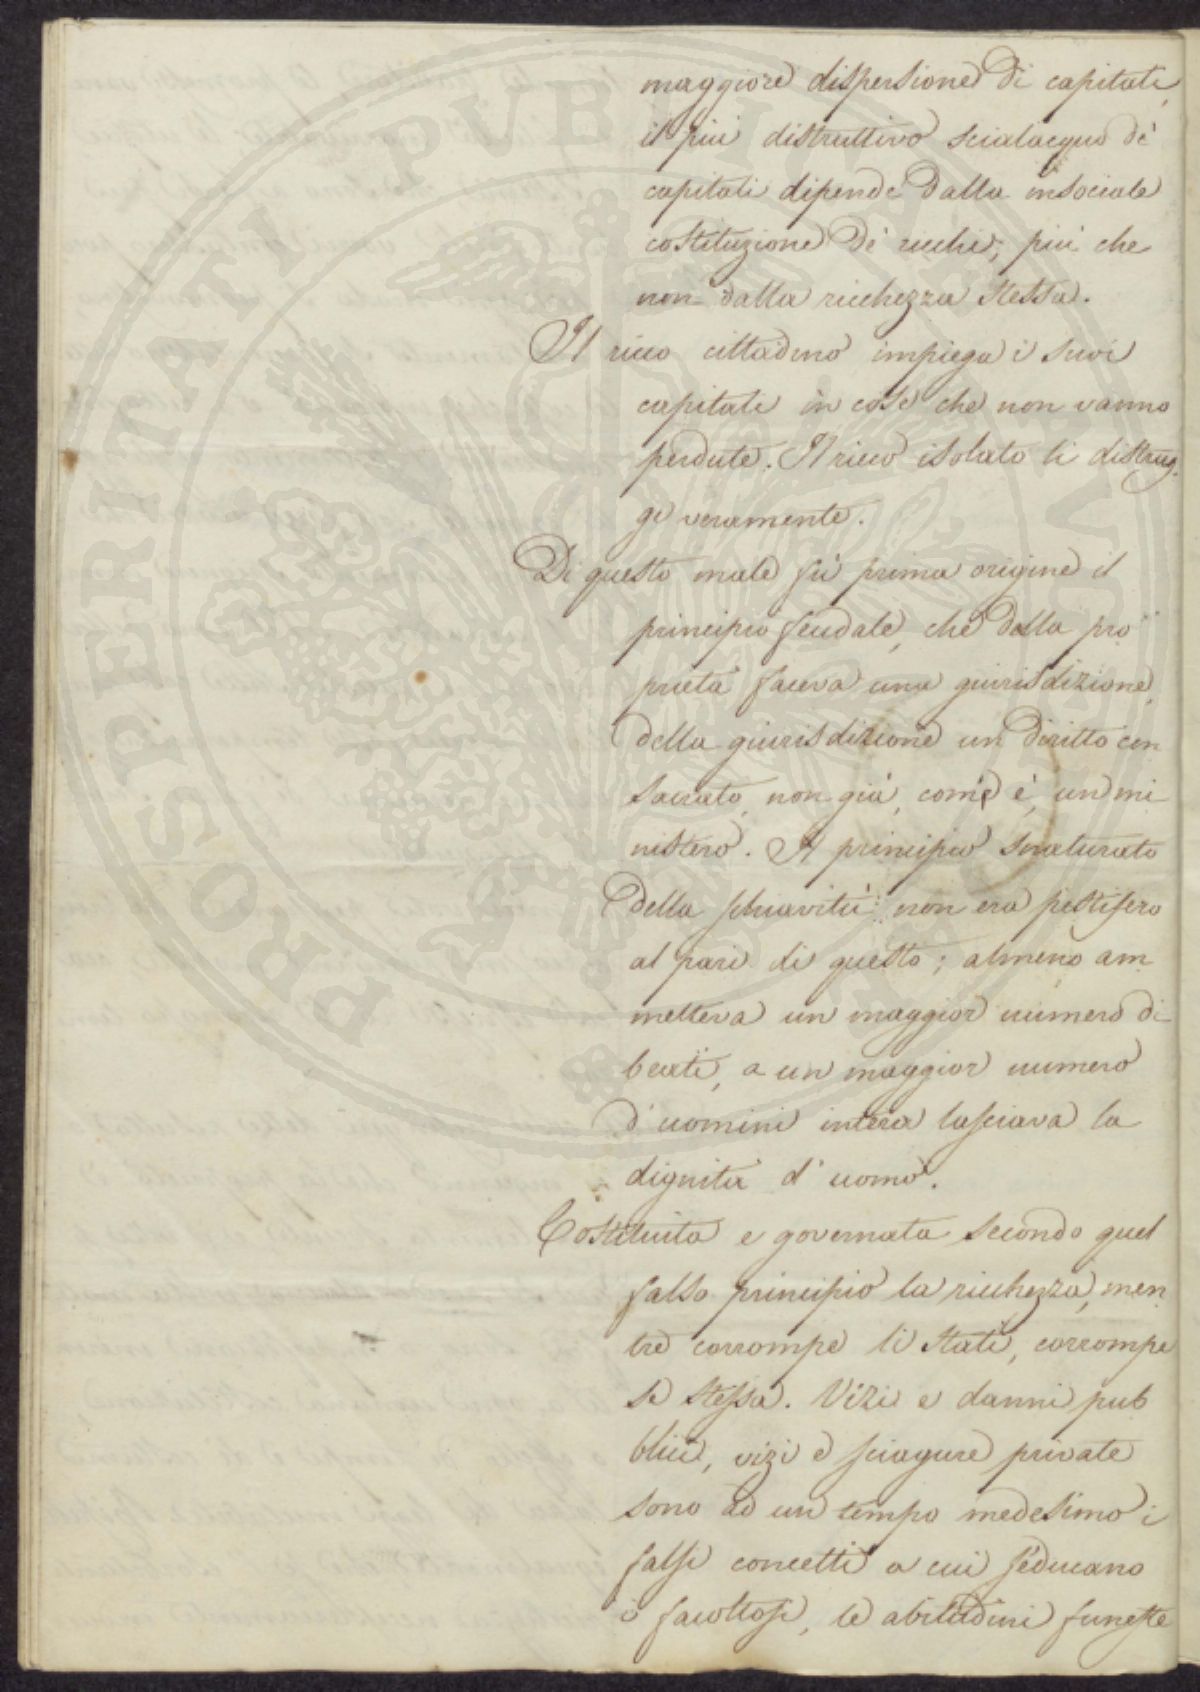 maggiore dispersione di capitali,
il più distruttivo scialacquo de'
capitali dipende dalla insociale
costituzione de' ricchi, più che
non dalla ricchezza stessa.
Il ricco cittadino impiega i suoi
capitali in cose che non vanno
perdute. Il ricco isolato li distrug
ge veramente.
Di questo male fù prima origine il
principio feudale, che dalla pro
prietà faceva una giurisdizione,
della giurisdizione un diritto con
sacrato, non già, com'è, un mi
nistero. Il principio snaturato
della schiavitù non era pestifero
al pari di questo; almeno am
metteva un maggior numero di
beati, a un maggior numero
d'uomini intera lasciava la
dignità d'uomo.
Costituita e governata secondo quel
falso principio la ricchezza, men
tre corrompe li stati, corrompe
se stessa. Vizi e danni pub
blici, vizi e sciagure private
sono ad un tempo medesimo i
falsi concetti a cui s'educano
i facoltosi, le abitudini funeste
PROSPERITATI PUBLICAE